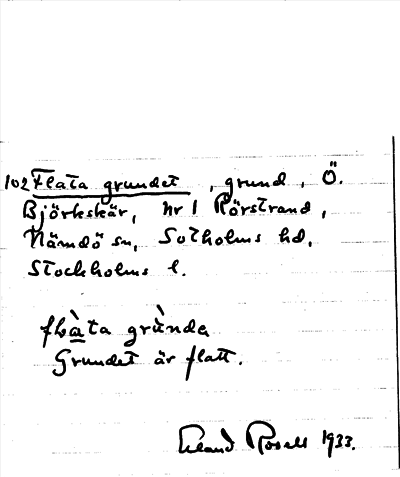 102 Flata grundet, grund, Ö.
Björkskär, nr 1 Rörstrand,
Nämdö sn, Sotholms hd,
Stockholms l.
flàta grùnde
Grundet är flatt.
Erland Rosell 1933.